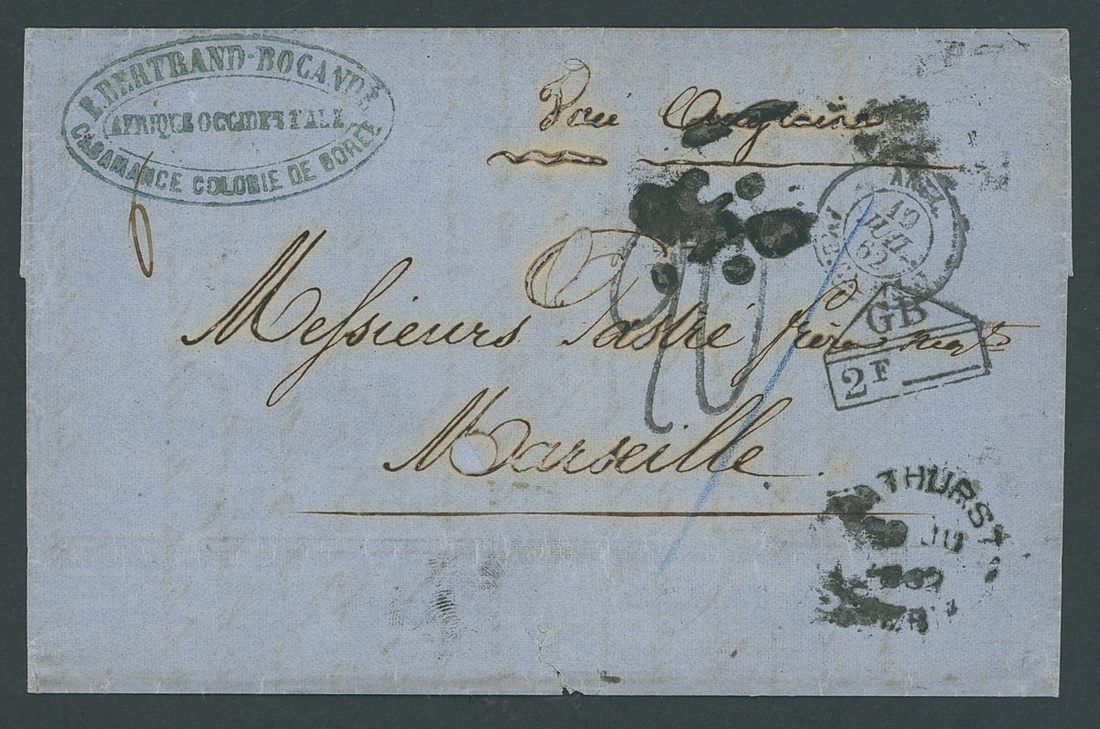 E. BERTRAND-BOCANDÉ
AFRIQUE OCCIDENTALE
CASAMANCE COLONIE DE GORÉE
Voie Anglaise
6
ANGL.
19
JUIL.
62
Messieurs Pastré frères Negts
20
GB
2F
Marseille
THURST
JU
1862